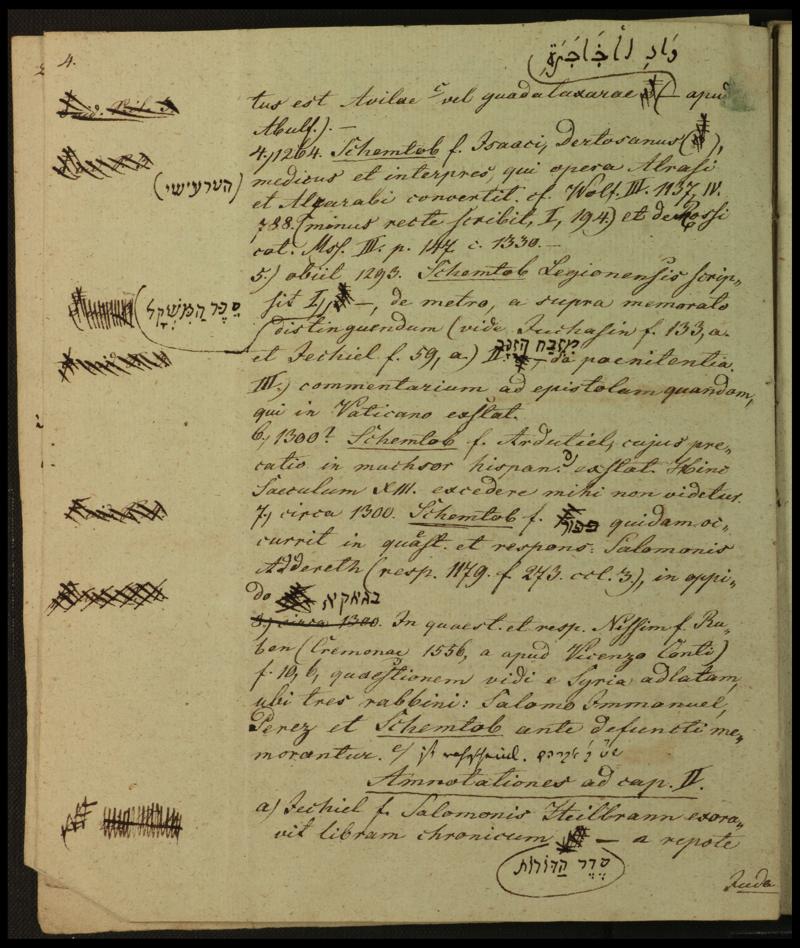 4.
وَادِ لأحَجَاجَرَةِ
tus est Avilae c) vel guadalaxarae (— apud
Abulf.). —
4, 1264. Schemtob f. Isaaci, Dertosanus ( ),
(הטרעישי)
medicus et interpres, qui opera Alrasi
et Algarabi convertit. cf. Wolf. III. 1137, IV.
788. (minus recte scribit, I, 194) et de Rossi
cat. Mss. III. p. 147 c. 1330. —
5) obiit 1293. Schemtob Legionensis scrip-
סֵפֶר הַמִּשְׁקָל
sit I, —, de metro, a supra memorato
distinguendum (vide Juchasin f. 133, a.
מִזְבַּח הַזָּהָב
et Jechiel f. 59, a.) II. —, de poenitentia.
III.) commentarium ad epistolam quandam,
qui in Vaticano exstat.
6, 1300? Schemtob f. Ardutiel, cujus pre-
catio in machsor hispan. d) exstat. Hinc
Saeculum XIII. excedere mihi non videtur.
7, circa 1300. Schemtob f. quidam oc-
currit in quäst. et respons. Salomonis
Addereth (resp. 1179. f. 273. col. 3.), in oppi-
do
8) circa 1300. In quaest. et resp. Nissim f. Ru-
ben (Cremonae 1556, a apud Vicenzo Conti)
f. 10, b, quaestionem vidi e Syria adlatam,
ubi tres rabbini: Salomo Immanuel,
Perez et Schemtob ante defuncti me-
morantur. e)
Annotationes ad cap. II.
a) Jechiel f. Salomonis Heilbrann exora-
vit libram chronicum — a repote
סֵדֶר הַדּוֹרוֹת
Juda